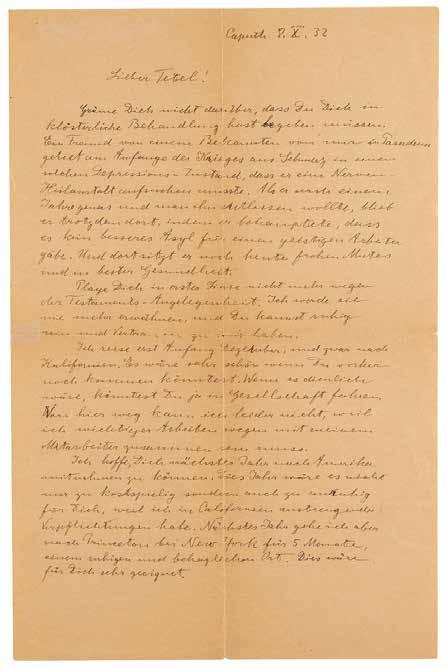 Caputh 7. X. 32
Lieber Tetel!
Gräme Dich nicht darüber, dass Du Dich in
klösterliche Behandlung hast begeben müssen.
Ein Freund von einem Bekannten von mir in Pasadena
geriet am Anfange des Krieges aus in einen
solchen Depressions-Zustand, dass er eine Nerven-
Heilanstalt aufsuchen musste. Als er nach einem
Jahre genas und man ihn entlassen wollte, blieb
er trotzdem dort, indem er behauptete, dass
es kein besseres Asyl für einen geistigen Arbeiter
gäbe. Und dort sitzt er noch heute frohen Mutes
und in bester Gesundheit.
Plage Dich in erster Linie nicht mehr wegen
der Testaments-Angelegenheit. Ich werde sie
nie mehr erwähnen, und Du kannst ruhig
sein und Vertrauen zu mir haben.
Ich reise erst Anfang Dezember, und zwar nach
Kalifornien. Es wäre sehr schön wenn Du vorher
noch kommen könntest. Wenn es dienlich
wäre, könntest Du ja in Gesellschaft fahren.
Von hier weg kann ich leider nicht, weil
ich wichtiger Arbeiten wegen mit meinem
Mitarbeiter zusammen sein muss.
Ich hoffe, Dich nächstes Jahr nach Amerika
mitnehmen zu können. Dies Jahr wäre es nicht
nur zu kostspielig sondern auch zu unruhig
für Dich, weil ich in Californien anstrengende
Verpflichtungen habe. Nächstes Jahr gehe ich aber
nach Princeton bei New York für 5 Monate,
einem ruhigen und behaglichen Ort. Dies wäre
für Dich sehr geeignet.